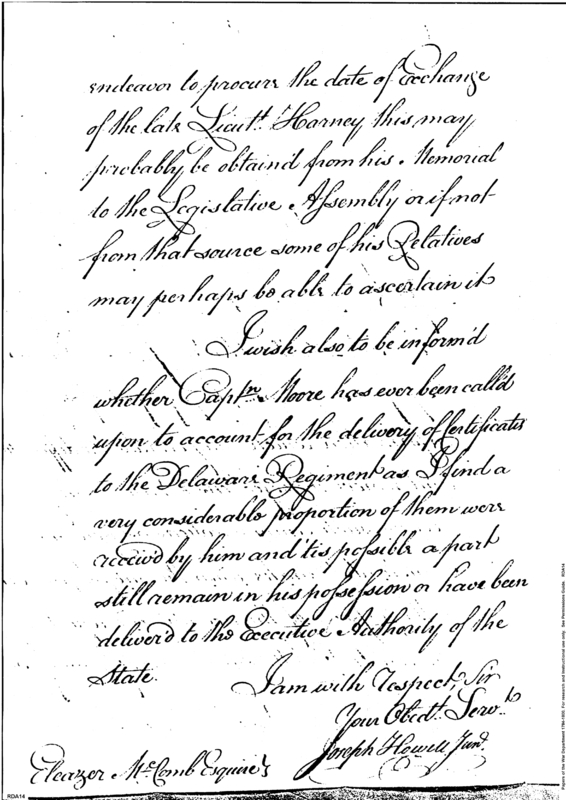 endeavor to procure the date of Exchange
of the late Lieutt. Harney this may
probably be obtaind from his Memorial
to the Legislative Assembly or if not
from that source some of his Relatives
may perhaps be able to ascertain it
I wish also to be inform'd
whether Captn Moore has ever been call'd
upon to account for the delivery of Certificates
to the Delaware Regiment as I find a
very considerable proportion of them were
receivd by him and tis possible a part
still remain in his possession or have been
deliver'd to the Executive Authority of the
State.
I am with respect, Sir
Your Obedt. Servt.
Joseph Howell Junr.
Eleazer McComb Esquire
RDA14
Papers of the War Department 1784-1800. For research and instructional use only. See Permissions Guide. RDA14